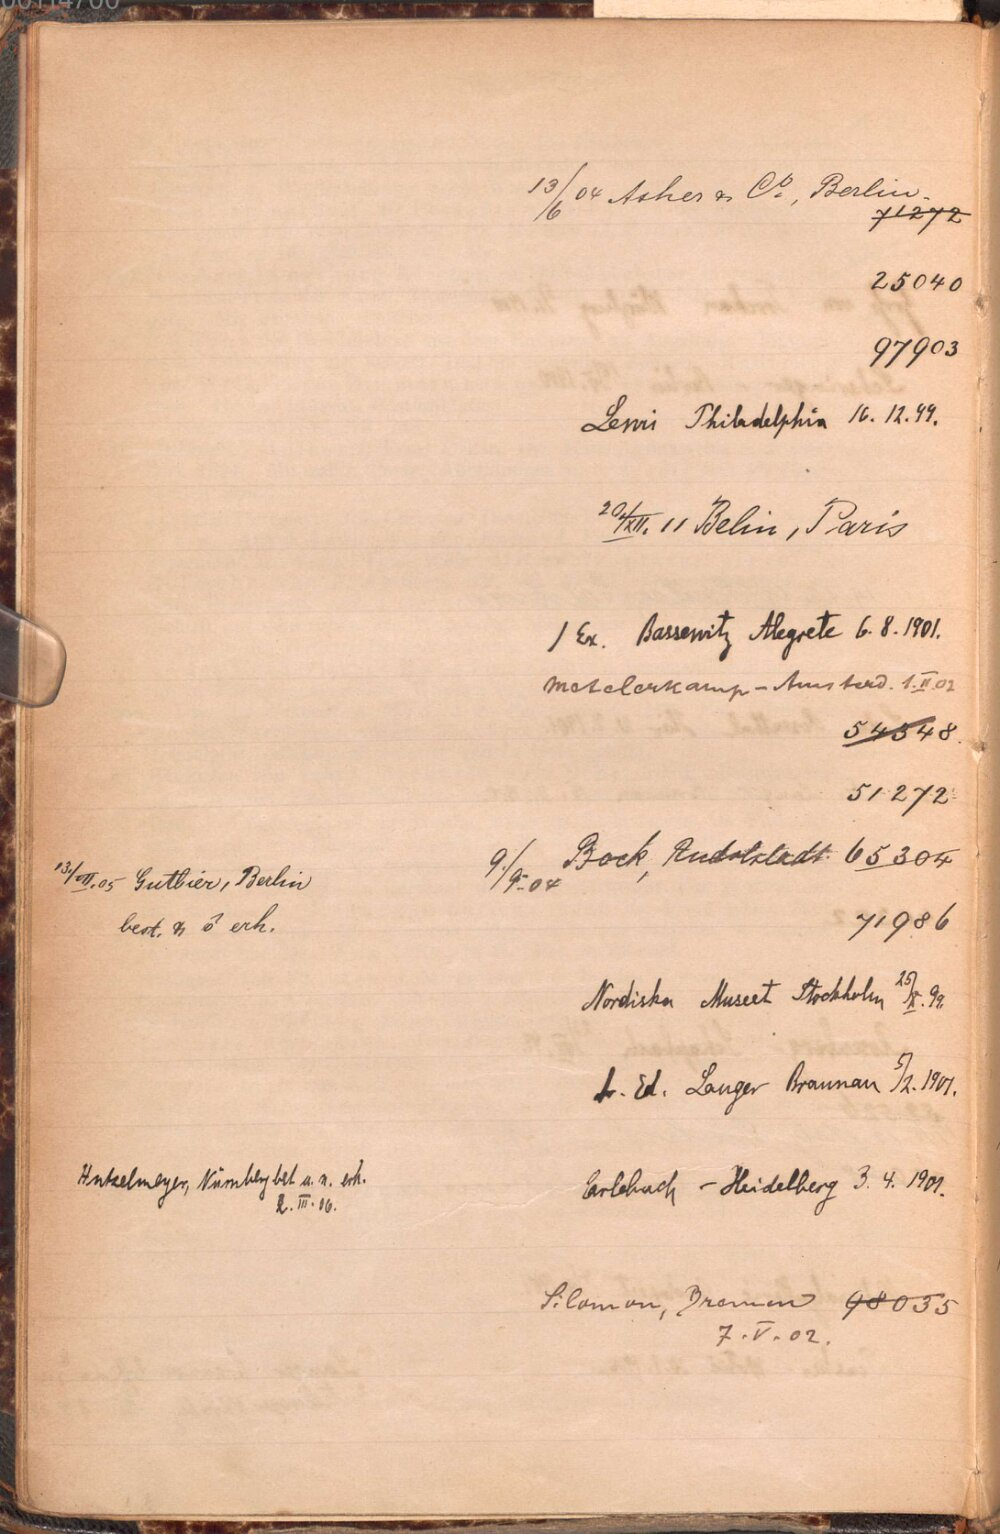 00114700
13/6 04 Asher & Co., Berlin.
71272
25040
97903
Lewis Philadelphia 16. 12. 99.
20/XII. 11 Belin, Paris
1 Ex. Bassewitz Alegrete 6. 8. 1901.
Metelerkamp - Amsterd. 1. II 02
54548.
51272
9./5 04 Bock, Rudolstadt 65304
13/VII. 05 Gutbier, Berlin
best. & erh.
71986
Nordiska Museet Stockholm 25/X. 99
Dr. Ed. Langer Braunau 5/2. 1901.
Hutzelmeyer, Nürnberg best u. n. erh.
2. III. 06.
Carlebach - Heidelberg 3. 4. 1901.
Silomon, Bremen 98035
7. V. 02.